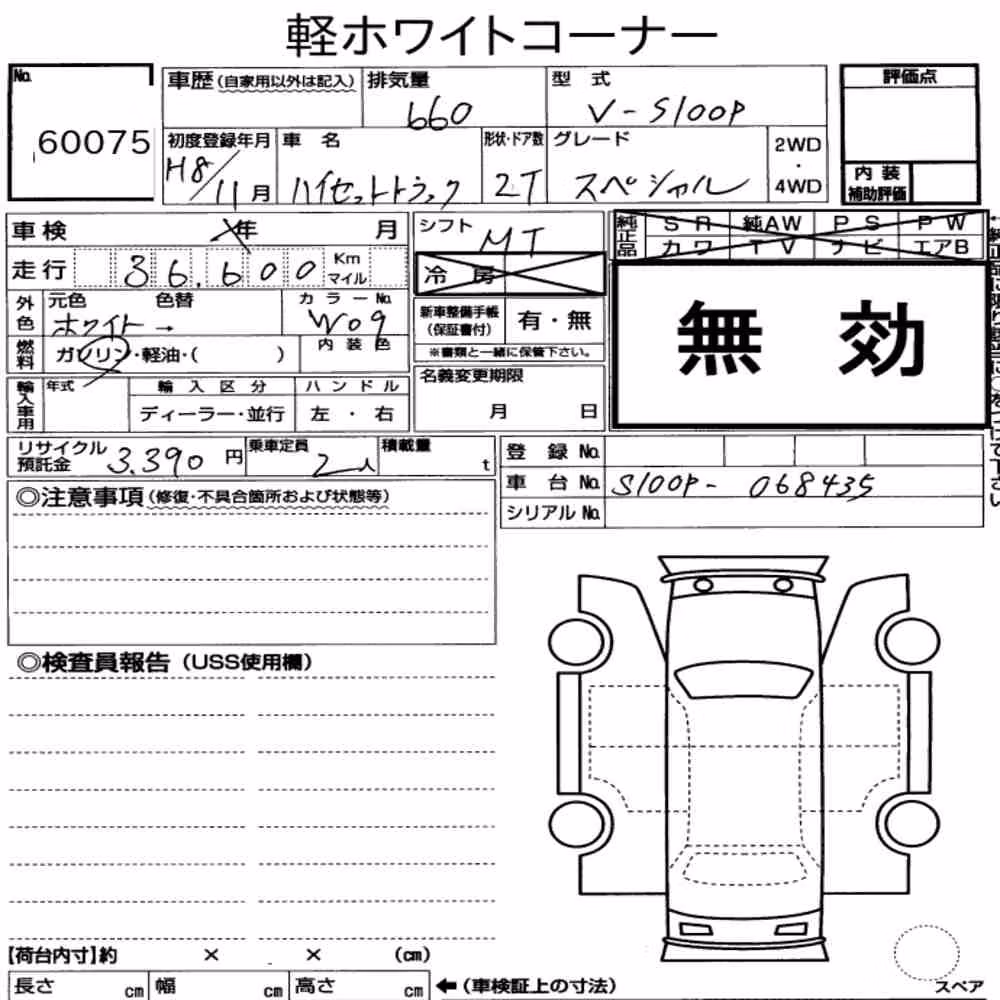 軽ホワイトコーナー
No. 60075
車歴(自家用以外は記入) 排気量 660 型式 V-S100P
初度登録年月 H8/11月 車名 ハイゼットトラック 形状・ドア数 2T グレード スペシャル 2WD・4WD
評価点
内装補助評価
車検 年 月
走行 36,600 Km マイル
シフト MT
冷房
純正品 SR 純AW PS PW
カワ TV ナビ エアB
無効
外色 元色 ホワイト → 色替 カラーNo. W09
内装色
燃料 ガソリン・軽油・( )
新車整備手帳(保証書付) 有・無
※書類と一緒に保管下さい。
輸入車用 年式 輸入区分 ハンドル
ディーラー・並行 左・右
名義変更期限
月 日
リサイクル預託金 3.390円 乗車定員 2人 積載量 t
登録No.
車台No. S100P- 068435
シリアルNo.
◎注意事項(修復・不具合箇所および状態等)
◎検査員報告(USS使用欄)
【荷台内寸】約 × × (cm)
長さ cm 幅 cm 高さ cm ←(車検証上の寸法)
スペア